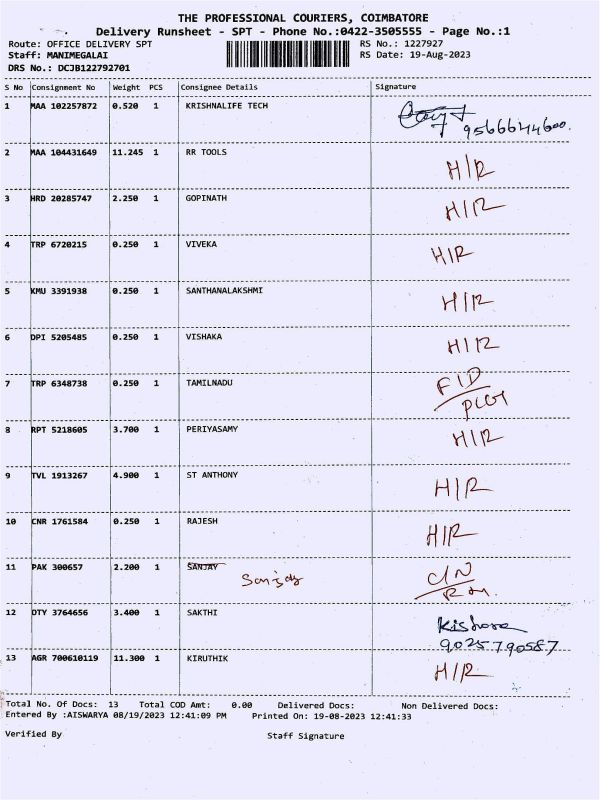 THE PROFESSIONAL COURIERS, COIMBATORE
Delivery Runsheet - SPT - Phone No.:0422-3505555 - Page No.:1
Route: OFFICE DELIVERY SPT RS No.: 1227927
Staff: MANIMEGALAI RS Date: 19-Aug-2023
DRS No.: DCJB122792701
S No Consignment No Weight PCS Consignee Details Signature
1 MAA 102257872 0.520 1 KRISHNALIFE TECH
9566644600.
2 MAA 104431649 11.245 1 RR TOOLS H/R
3 HRD 20285747 2.250 1 GOPINATH H/R
4 TRP 6720215 0.250 1 VIVEKA H/R
5 KMU 3391938 0.250 1 SANTHANALAKSHMI H/R
6 DPI 5205485 0.250 1 VISHAKA H/R
7 TRP 6348738 0.250 1 TAMILNADU F/D
8 RPT 5218605 3.700 1 PERIYASAMY H/R
9 TVL 1913267 4.900 1 ST ANTHONY H/R
10 CNR 1761584 0.250 1 RAJESH H/R
11 PAK 300657 2.200 1 SANJAY
Sanjay
12 DTY 3764656 3.400 1 SAKTHI Kishore
9025790587
13 AGR 700610119 11.300 1 KIRUTHIK H/R
Total No. Of Docs: 13 Total COD Amt: 0.00 Delivered Docs: Non Delivered Docs:
Entered By :AISWARYA 08/19/2023 12:41:09 PM Printed On: 19-08-2023 12:41:33
Verified By Staff Signature